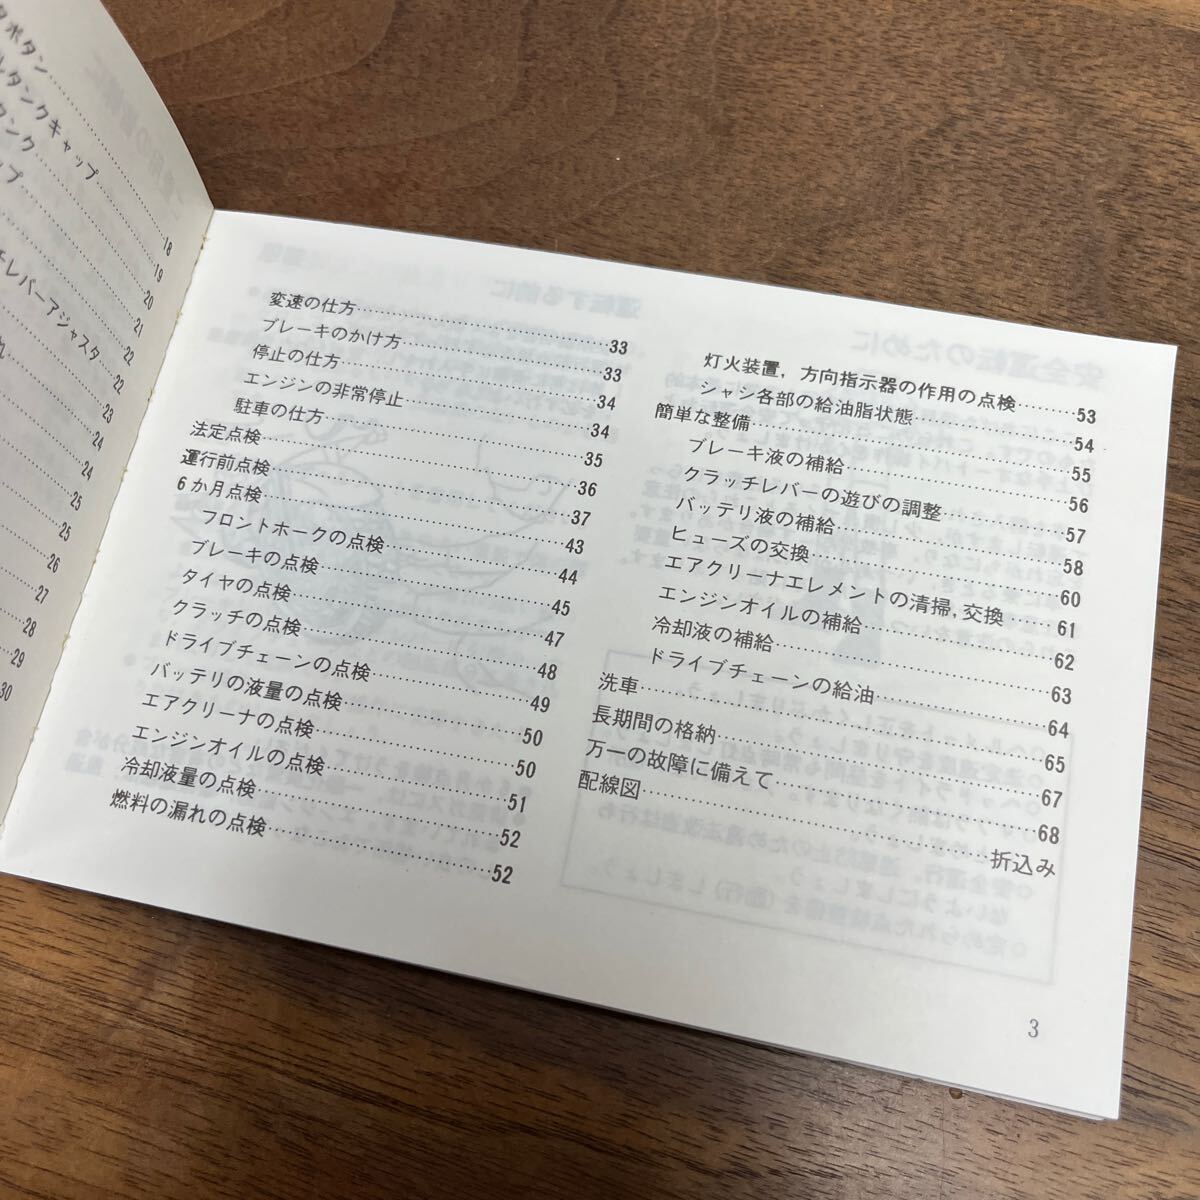 ボタン
タンクキャップ
タンク
ップ
レバーアジャスタ
れ
18
19
20
21
22
22
23
24
24
25
25
26
27
28
29
30
変速の仕方……33
ブレーキのかけ方……33
停止の仕方……34
エンジンの非常停止……34
駐車の仕方……35
法定点検……36
運行前点検……37
6か月点検……43
フロントホークの点検……44
ブレーキの点検……45
タイヤの点検……47
クラッチの点検……48
ドライブチェーンの点検……49
バッテリの液量の点検……50
エアクリーナの点検……50
エンジンオイルの点検……51
冷却液量の点検……52
燃料の漏れの点検……52
灯火装置，方向指示器の作用の点検……53
シャシ各部の給油脂状態……54
簡単な整備……55
ブレーキ液の補給……56
クラッチレバーの遊びの調整……57
バッテリ液の補給……58
ヒューズの交換……60
エアクリーナエレメントの清掃，交換……61
エンジンオイルの補給……62
冷却液の補給……63
ドライブチェーンの給油……64
洗車……65
長期間の格納……67
万一の故障に備えて……68
配線図……折込み
3